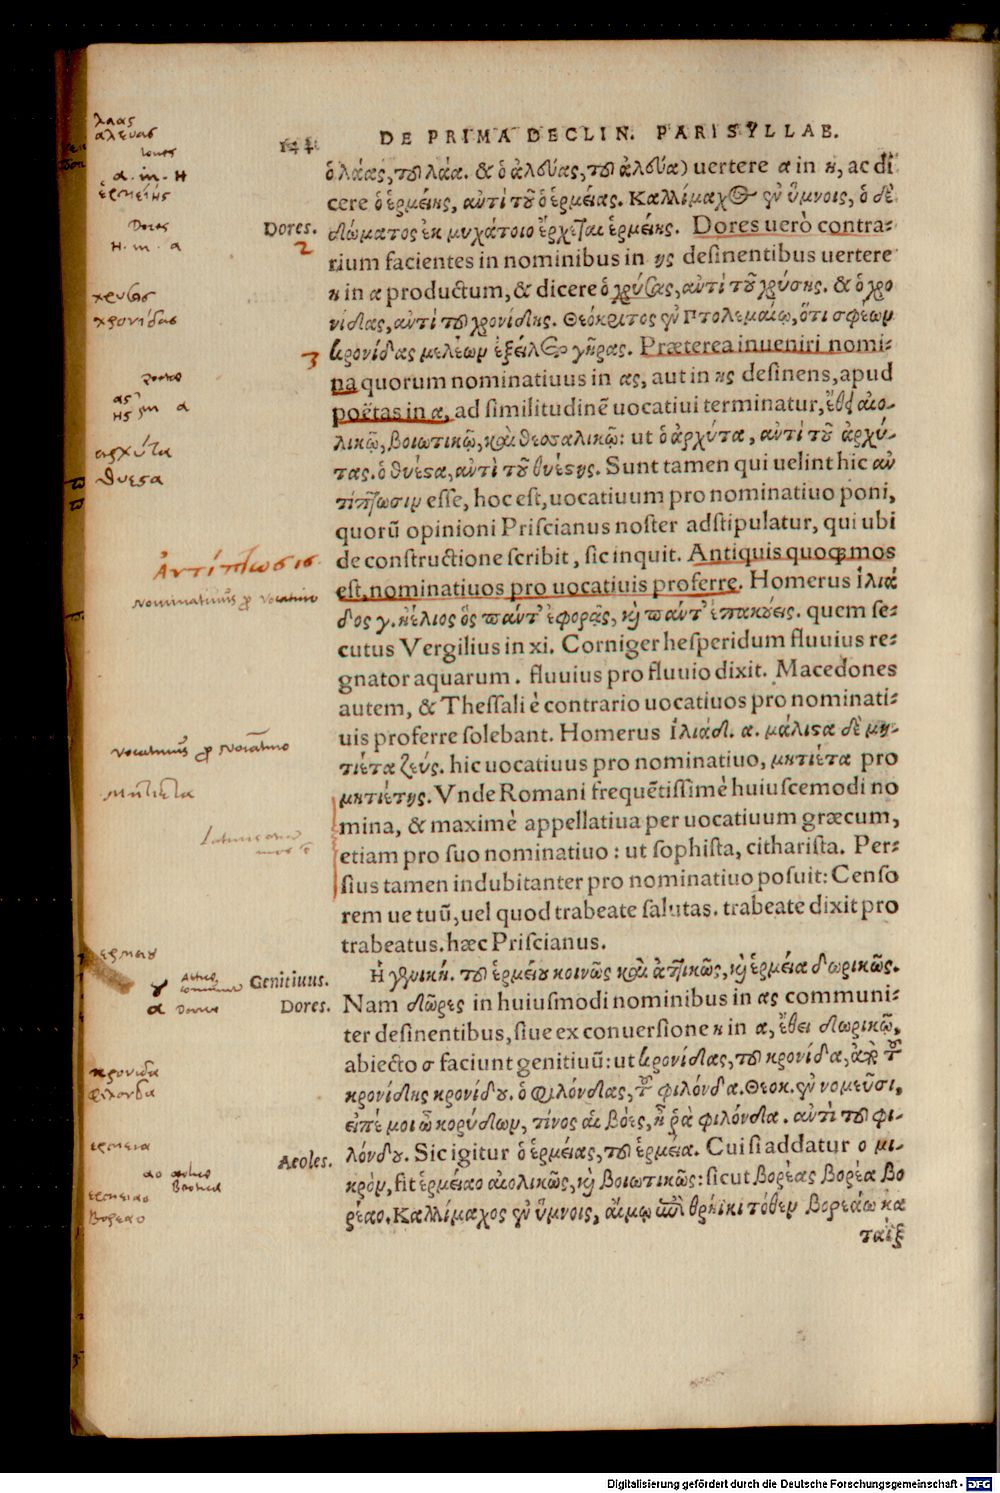 144 DE PRIMA DECLIN. PARISYLLAB.
ὁ λάας, τοῦ λάα. & ὁ ἀλεύας, τοῦ ἀλεύα) uertere α in η, ac di
cere ὁ ἑρμείης, ἀντὶ τοῦ ὁ ἑρμείας. Καλλίμαχος ἐν ὕμνοις, ὁ δὲ
Dores. δώματος ἐκ μυχάτοιο ἔρχεται ἑρμείης. Dores uerò contra-
2
rium facientes in nominibus in ης desinentibus uertere
η in α productum, & dicere ὁ χρύσας, ἀντὶ τοῦ χρύσης. & ὁ χρο
νίδας, ἀντὶ τοῦ χρονίδης. Θεόκριτος ἐν Πτολεμαίῳ, ὅτι σφέων
3 κρονίδας μελέων ἐξείλετο γῆρας. Præterea inueniri nomi-
na quorum nominatiuus in ας, aut in ης desinens, apud
poëtas in α, ad similitudinē uocatiui terminatur, ἔθει αἰο-
λικῷ, βοιωτικῷ, καὶ θεσσαλικῷ: ut ὁ ἀρχύτα, ἀντὶ τοῦ ἀρχύ-
τας. ὁ θυέςα, ἀντὶ τοῦ θυέςης. Sunt tamen qui uelint hic ἀν
τίπτωσιν esse, hoc est, uocatiuum pro nominatiuo poni,
quorū opinioni Priscianus noster adstipulatur, qui ubi
de constructione scribit, sic inquit. Antiquis quoq; mos
est, nominatiuos pro uocatiuis proferre. Homerus ἰλιά
δος γ. ἠέλιος ὃς πάντ' ἐφορᾷς, καὶ πάντ' ἐπακούεις. quem se-
cutus Vergilius in xi. Corniger hesperidum fluuius re-
gnator aquarum. fluuius pro fluuio dixit. Macedones
autem, & Thessali è contrario uocatiuos pro nominati-
uis proferre solebant. Homerus ἰλιάδ. α. μάλιςα δὲ μη-
τιέτα ζεύς. hic uocatiuus pro nominatiuo, μητιέτα pro
μητιέτης. Vnde Romani frequētissimè huiuscemodi no
mina, & maximè appellatiua per uocatiuum græcum,
etiam pro suo nominatiuo: ut sophista, citharista. Per-
sius tamen indubitanter pro nominatiuo posuit: Censo
rem ue tuū, uel quod trabeate salutas. trabeate dixit pro
trabeatus. hæc Priscianus.
Genitiuus. Ἡ γενική. τοῦ ἑρμείου κοινῶς καὶ ἀττικῶς, καὶ ἑρμεία δωρικῶς.
Dores. Nam δῶρες in huiusmodi nominibus in ας communi-
ter desinentibus, siue ex conuersione η in α, ἔθει δωρικῷ,
abiecto σ faciunt genitiuū: ut κρονίδας, τοῦ κρονίδα, ἀπὸ τοῦ
κρονίδης κρονίδου. ὁ φιλόνδας, τοῦ φιλόνδα. Θεοκ. ἐν νομεῦσι,
εἰπέ μοι ὦ κορύδων, τίνος αἱ βόες, ἦ ῥὰ φιλόνδα. ἀντὶ τοῦ φι-
Aeoles. λόνδου. Sic igitur ὁ ἑρμείας, τοῦ ἑρμεία. Cui si addatur ο μι-
κρὸν, fit ἑρμείαο αἰολικῶς, καὶ βοιωτικῶς: sicut βορέας βορέα βο
ρέαο. Καλλίμαχος ἐν ὕμνοις, αἵμῳ ἐπὶ θρήϊκι τόθεν βορέαω κα
ταῒξ
λαας
αλευας
Iones
α. in. η
ἑρμείης
Dores
η. in. α
χρυσας
χρονίδας
poetae
ας
ης in α
αρχύτα
θυεςα
Ἀντίπτωσις.
Nominatiuus pro vocatiuo
vocatiuus pro nominatiuo
Μητιετα
ερμειου
Dores
κρονιδα
φιλονδα
ερμεια
ερμειαο
βορεαο
Digitalisierung gefördert durch die Deutsche Forschungsgemeinschaft - DFG